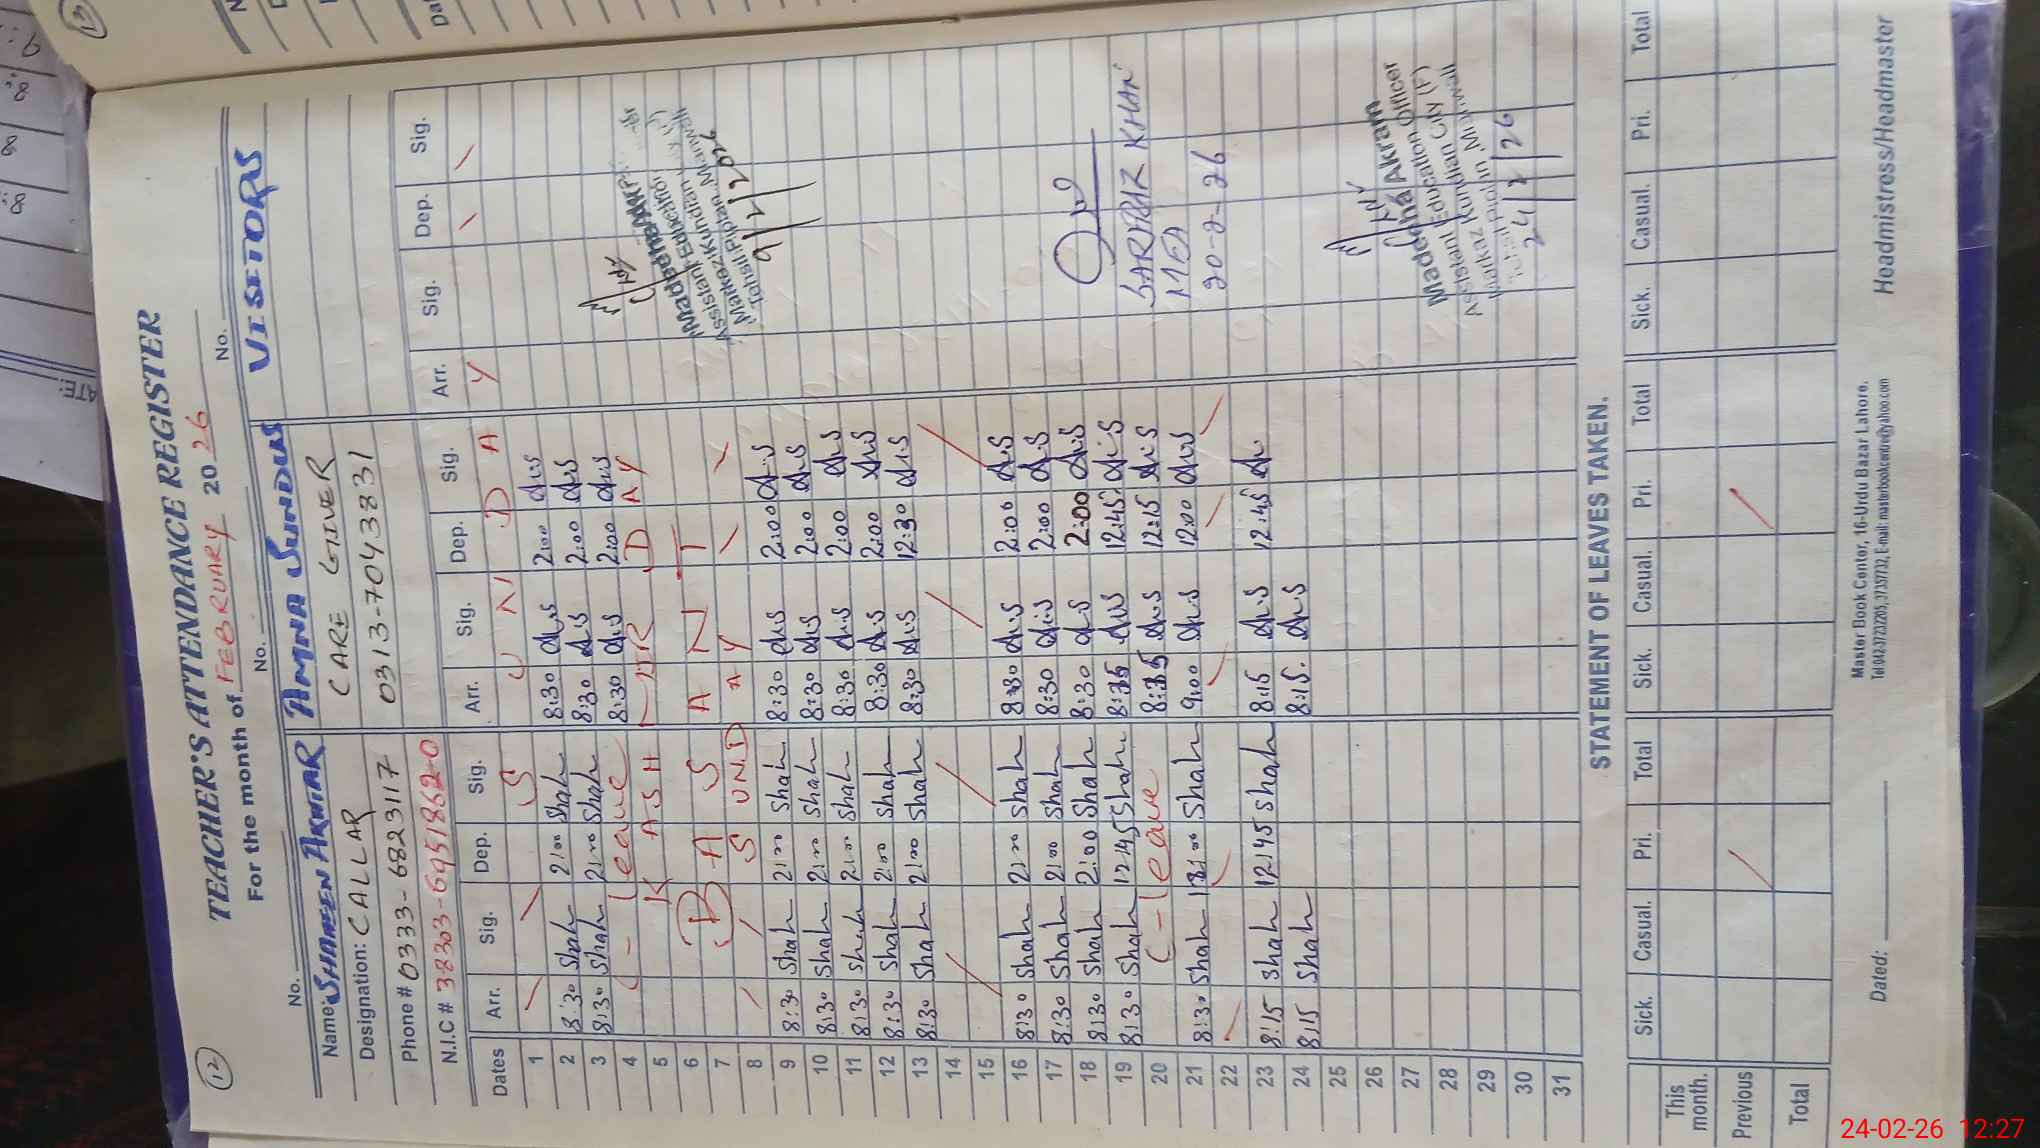 12
TEACHER'S ATTENDANCE REGISTER
For the month of FEBRUARY 2026
No. No. No.
Name: SHAHEEN AKHTAR AMNA SUNDUS VISETORS
Designation: CALLAR CARE GIVER
Phone # 0333-6823117 0313-7043831
N.I.C # 38303-6951862-0
Dates Arr. Sig. Dep. Sig. Arr. Sig. Dep. Sig. Arr. Sig. Dep. Sig.
1 S U N D A Y
2 8:30 Shah 2:00 Shah 8:30 2:00
3 8:30 Shah 2:00 Shah 8:30 2:00
4 C - leave 8:30 2:00
5 KASHMIR DAY
6 BASANT
7
8 SUNDAY
9 8:30 Shah 2:00 Shah 8:30 2:00
10 8:30 Shah 2:00 Shah 8:30 2:00
11 8:30 Shah 2:00 Shah 8:30 2:00
12 8:30 Shah 2:00 Shah 8:30 2:00
13 8:30 Shah 2:00 Shah 8:30 12:30
14
15
16 8:30 Shah 2:00 Shah 8:30 2:00
17 8:30 Shah 2:00 Shah 8:30 2:00
18 8:30 Shah 2:00 Shah 8:30 2:00
19 8:30 Shah 12:45 Shah 12:45
20 C - leave 12:15
21 8:30 Shah Shah 9:00 12:00
22
23 8:15 Shah 12:45 Shah 8:15 12:45
24 8:15 Shah 8:15
25
26
27
28
29
30
31
Assistant Education
Markaz Kundian
Tehsil Piplan Mianwali
9/2/2026
SARFRAZ KHAN
MEA
20-2-26
Madeeha Akram
Assistant Education Officer
Markaz Kundian City (F)
Tehsil Piplan Mianwali
24/2/26
STATEMENT OF LEAVES TAKEN.
Sick. Casual. Pri. Total Sick. Casual. Pri. Total Sick. Casual. Pri. Total
This month.
Previous
Total
Dated:
Master Book Center, 16-Urdu Bazar Lahore.
Headmistress/Headmaster
24-02-26 12:27